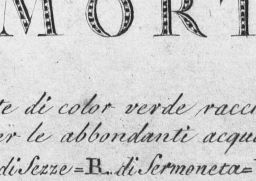 MORT
te di color verde racch
er le abbondanti acqu
di Sezze=R. di Sermoneta=